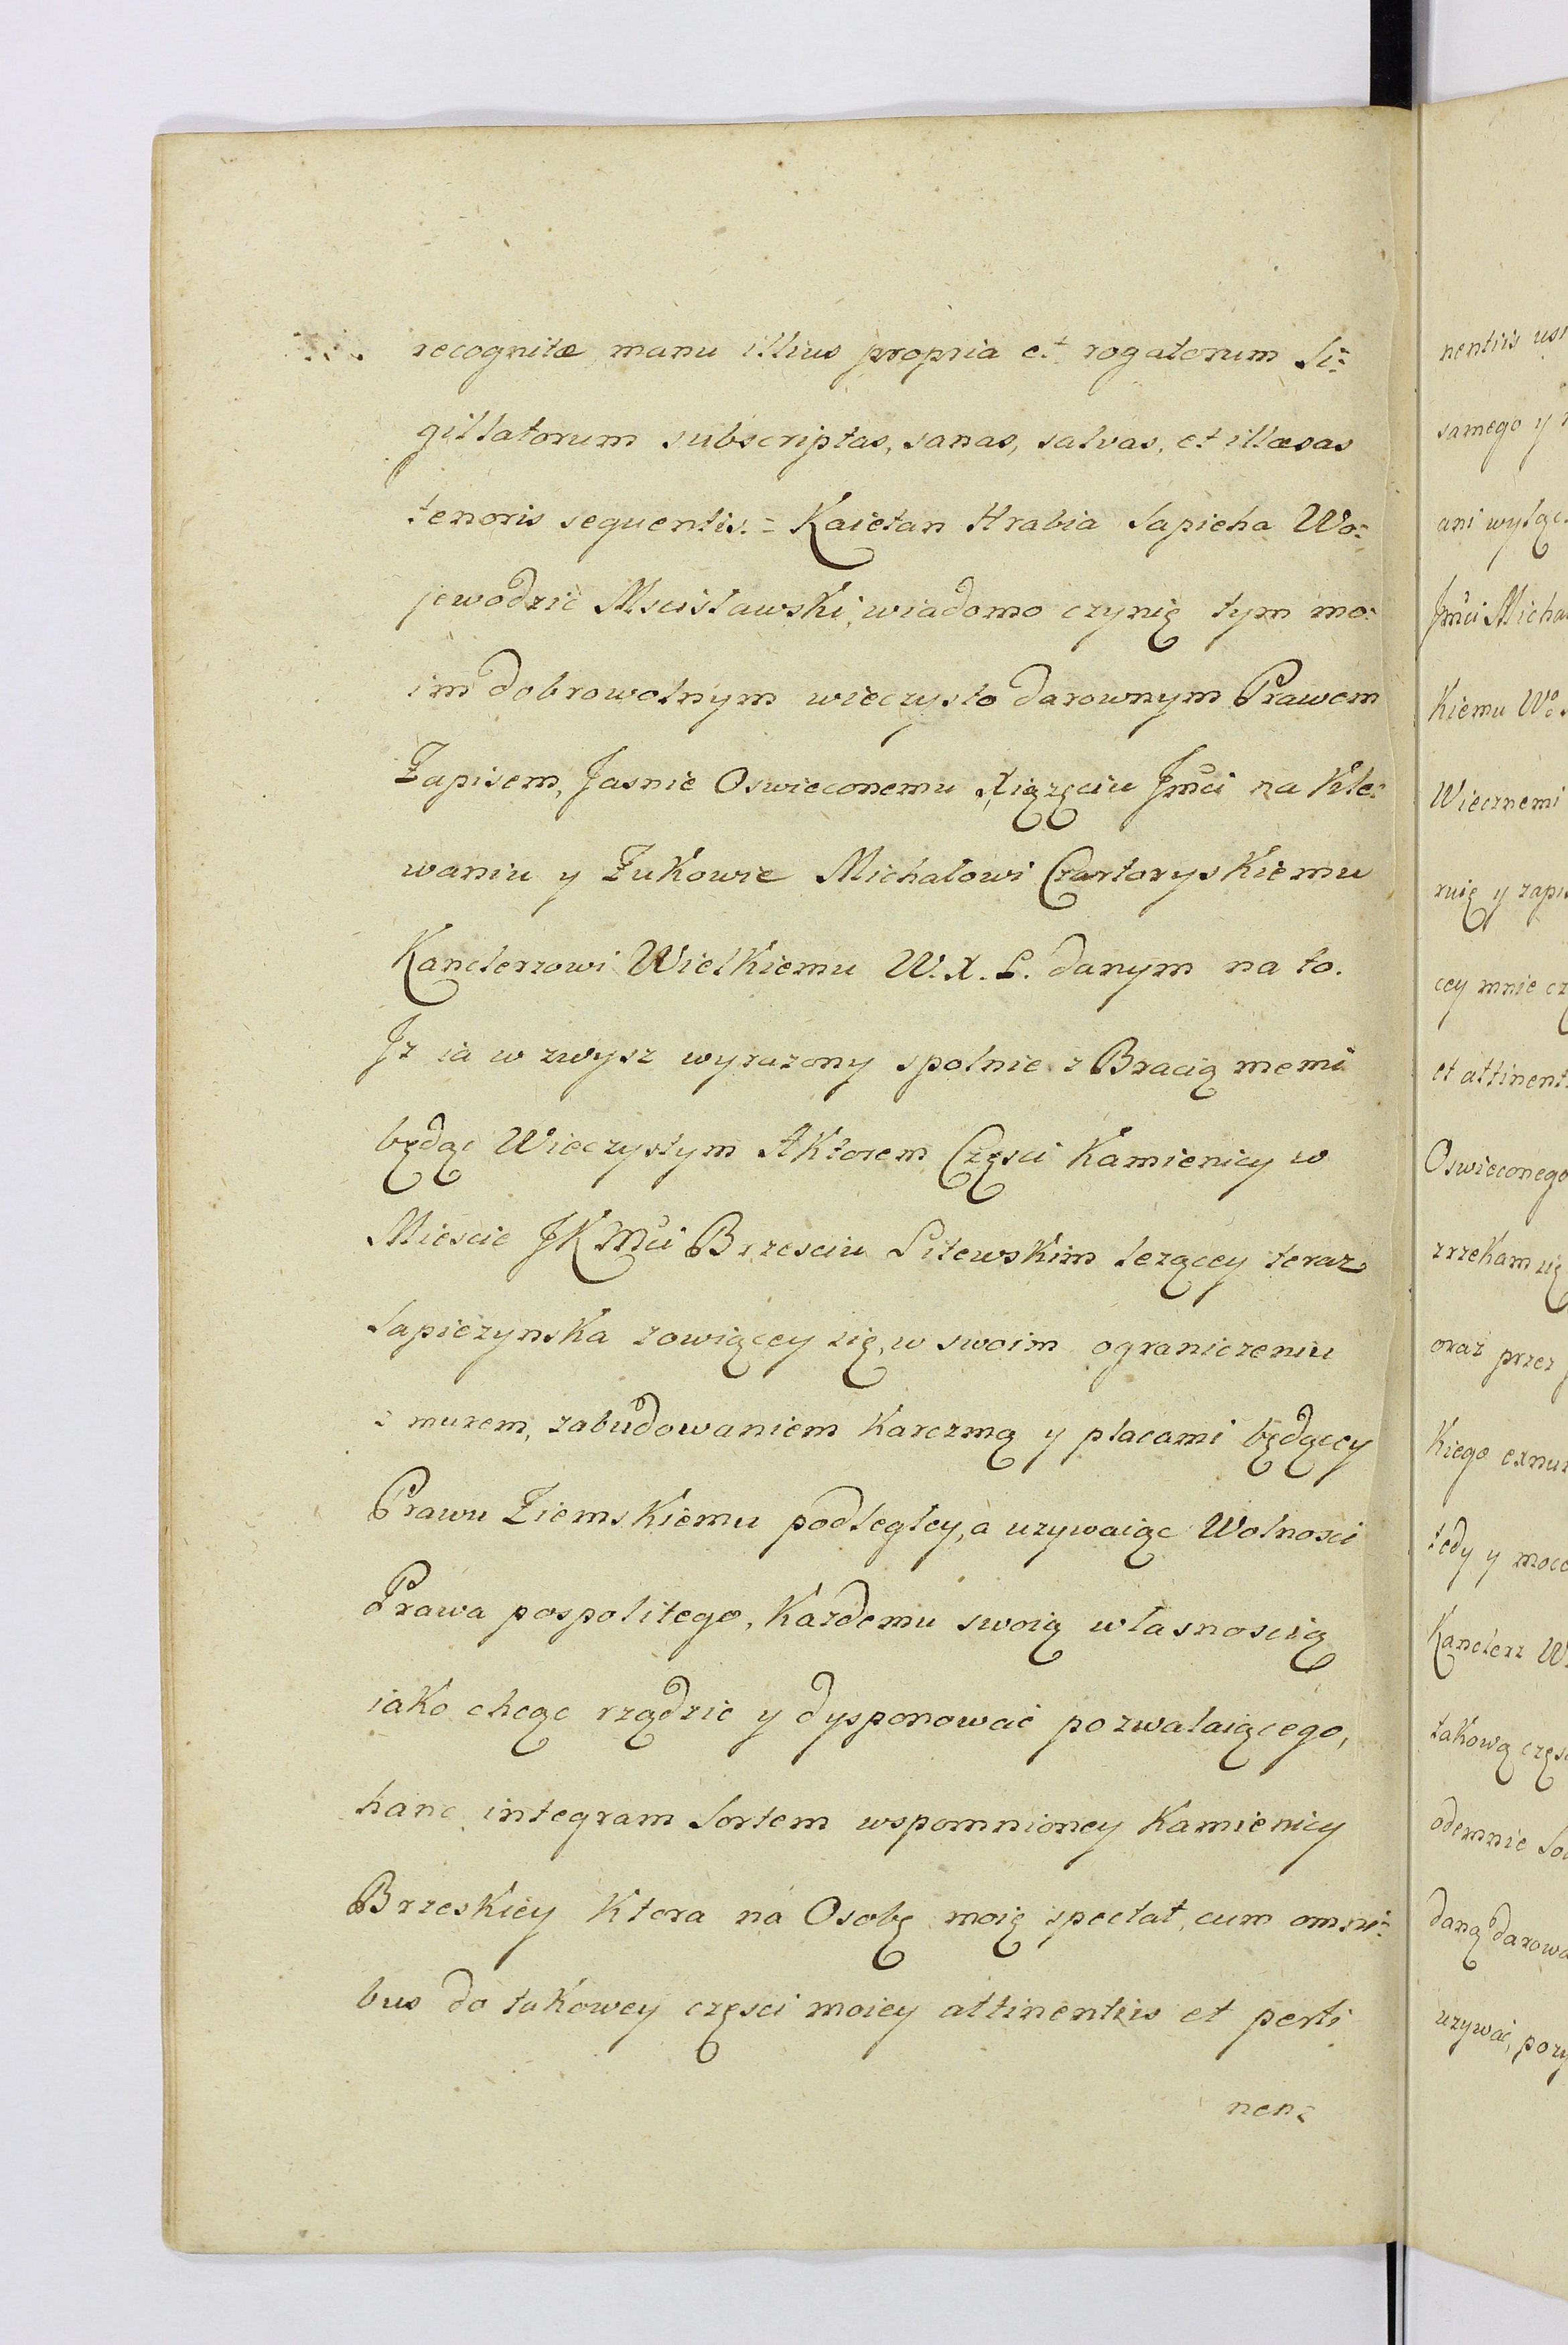 recognitæ manu illius propria et rogatorum Si=
gillatorum subscriptas, sanas, salvas, et illæsas
tenoris sequentis. = Kaietan Hrabia Sapieha Wo=
jewodzic Mscisławski, wiadomo czynię tym mo=
im dobrowolnym wieczysto darownym Prawem
Zapisem, Jasnie Oswieconemu Xiązęciu Jmci na Kle=
waniu y Zukowie Michałowi Czartoryskiemu
Kanclerzowi Wielkiemu W. X. L. danym na to.
Jz ia w zwysz wyrazony spolnie z Bracią memi
będąc Wieczystym Aktorem Częsci Kamienicy w
Miescie JK Mci Brzesciu Litewskim lezącey teraz
Sapiezynska zowiącey się, w swoim ograniczeniu
z murem, zabudowaniem Karczmą y placami będącey
Prawu Ziemskiemu podległey, a uzywaiąc Wolnosci
Prawa pospolitego, Kazdemu swoią własnoscią
iako chcąc rządzic y dysponowac pozwalaiącego,
hanc integram Sortem wspomnioney Kamienicy
Brzeskiey Ktora na Osobę moię spectat, cum omni=
bus do takowey częsci moiey attinentiis et perti
nen=
nentiis
samego y
ani
Jmci
Kiemu Wo
Wiecznemi
ruię y
cey mnie
et
Oswieconego
zrzekam się
oraz przez
Kiego
tedy y
Kanclerz
takową
odemnie
daną
uzywać,